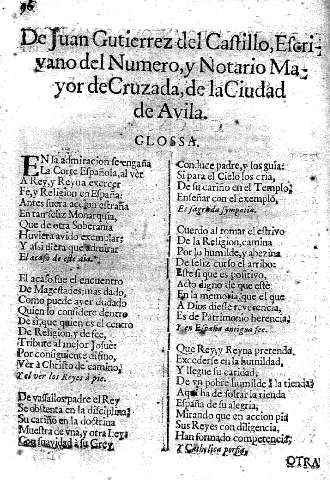 96
De Juan Gutierrez del Castillo, Escri-
vano del Numero, y Notario Ma-
yor de Cruzada, de la Ciudad
de Avila.
GLOSSA.
EN la admiracion se engaña
La Corte Española, al ver
A Rey, y Reyna exercer
Fe, y Religion en España:
Antes fuera accion estraña
En tan feliz Monarquia,
Que de otra Soberania
Huviera avido exemplar;
Y asi tiene que admirar
El acaso de este dia.
El acaso fue el encuentro
De Magestades, mas dado,
Como puede aver dudado
Quien lo considere dentro
De si, que quien es el centro
De Religion, y de fee,
Tribute al mejor Josuè
Por consiguiente
Ver à Christo de camino,
Y al ver los Reyes à pie.
De vassallos padre el Rey
Se obstenta en la disciplina;
Su cariño en la doctrina
Muestra de vna, y otra Ley:
Con suavidad à su Grey
Conduce padre, y los guia:
Si para el Cielo los cria,
De su cariño en el Templo,
Enseñar con el exemplo,
Es sagrada sympatia.
Cuerdo al tomar el estrivo
De la Religion, camina
Por la humilde, y
De feliz curso el arribo:
Este si que es positivo,
Acto digno de que estè
En la memoria, que el que
A Dios diesse reverencia,
Es de Patrimonio herencia,
Y en España antigua fee.
Que Rey, y Reyna pretenda
Excederse en la humildad,
Y llegue su caridad,
De vn pobre humilde à la tienda;
Aqui ha de soltar la rienda
España de su alegria,
Mirando que en accion pia
Sus Reyes con diligencia,
Han formado competencia,
Y Catholica porfia.
OTRA